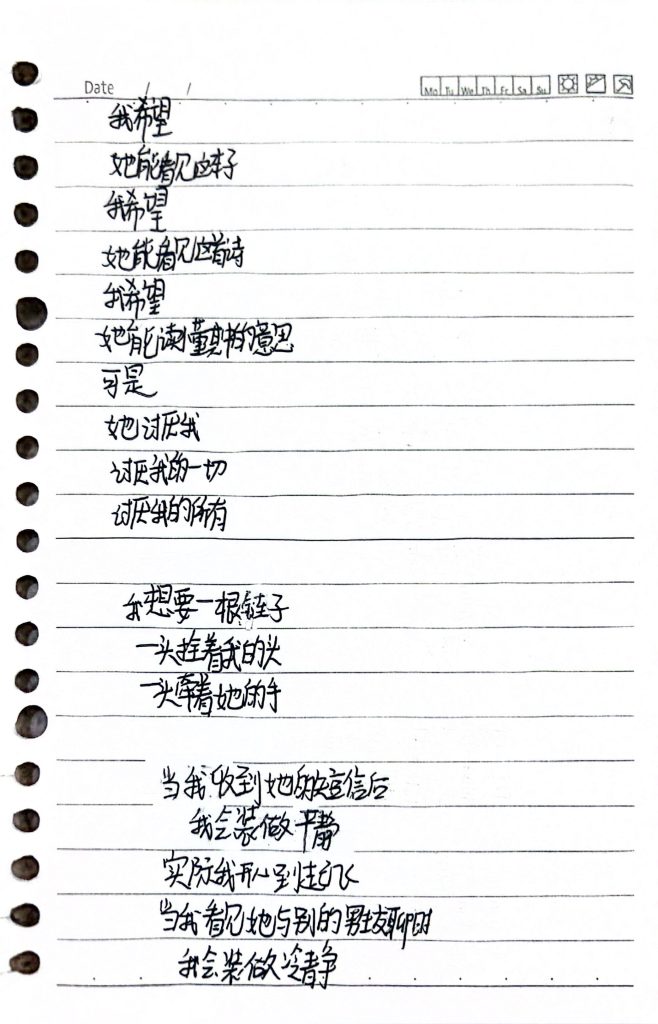 Date / /
Mo Tu We Th Fr Sa Su
我希望
她能看见这本子
我希望
她能看见这首诗
我希望
她能读懂其中的意思
可是
她讨厌我
讨厌我的一切
讨厌我的所有
我想要一根链子
一头拴着我的头
一头牵着她的手
当我收到她的短信后
我会装做平静
实际我开心到起飞
当我看见她与别的男生聊时
我会装做冷静